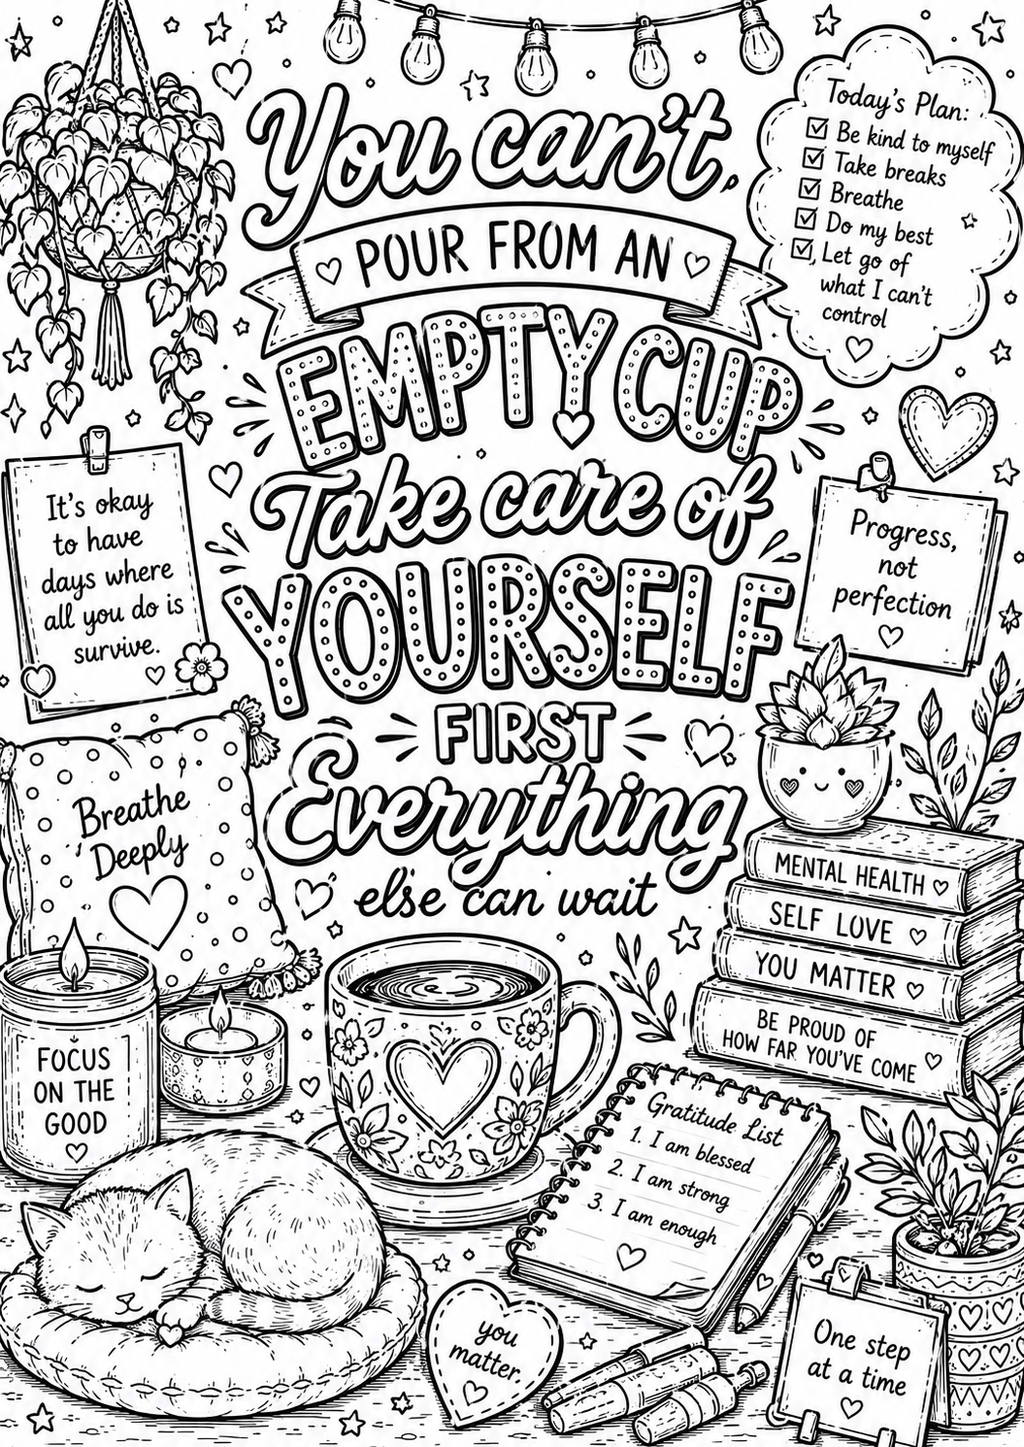 You can't
POUR FROM AN
EMPTY CUP
Take care of
YOURSELF
FIRST
Everything
else can wait
Today's Plan:
☑ Be kind to myself
☑ Take breaks
☑ Breathe
☑ Do my best
☑ Let go of
what I can't
control
It's okay
to have
days where
all you do is
survive.
Progress,
not
perfection
Breathe
Deeply
MENTAL HEALTH
SELF LOVE
YOU MATTER
BE PROUD OF
HOW FAR YOU'VE COME
FOCUS
ON THE
GOOD
Gratitude List
1. I am blessed
2. I am strong
3. I am enough
you
matter.
One step
at a time